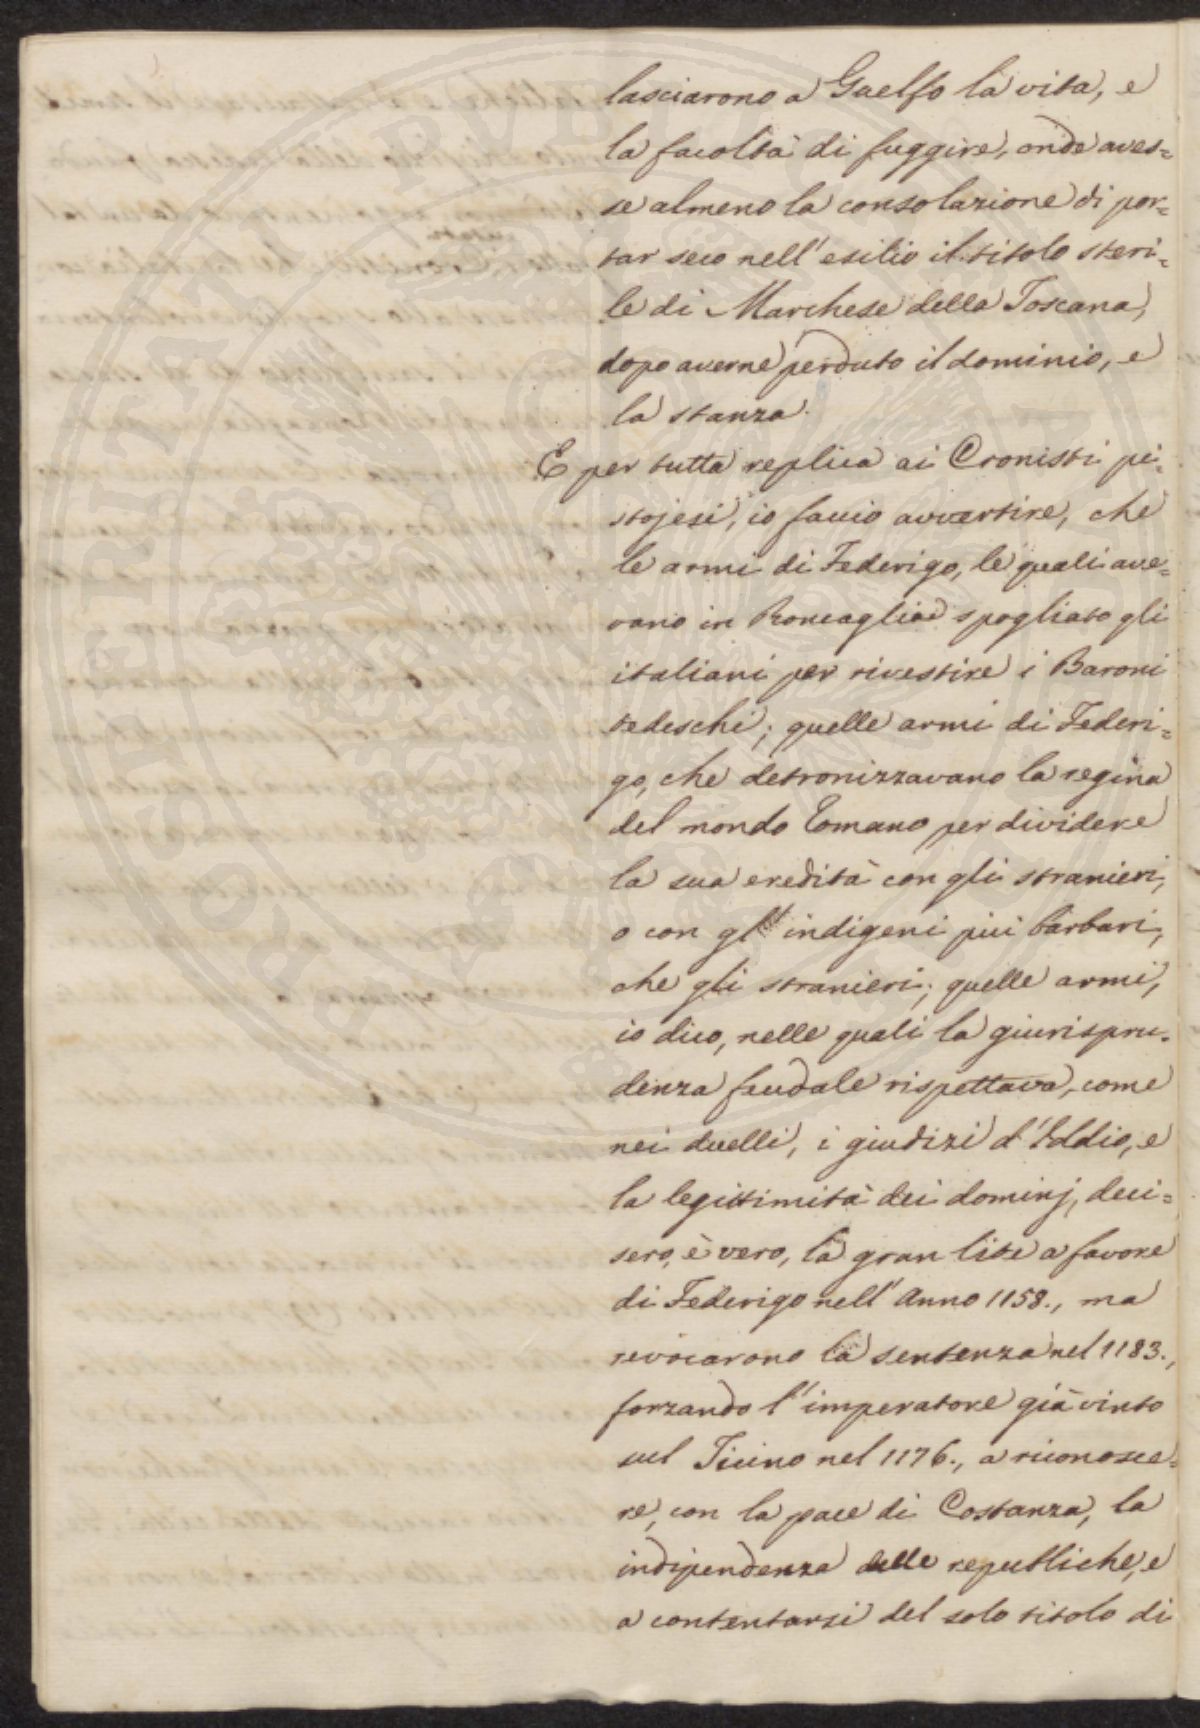 lasciarono a Guelfo la vita, e
la facoltà di fuggire, onde aves=
se almeno la consolazione di por=
tar seco nell'esilio il titolo steri=
le di Marchese della Toscana,
dopo averne perduto il dominio, e
la stanza.
E per tutta replica ai Cronisti pi=
stojesi, io faccio avvertire, che
le armi di Federigo, le quali ave=
vano in Roncaglia spogliato gli
italiani per rivestire i Baroni
tedeschi; quelle armi di Federi=
go, che detronizzavano la regina
del mondo Romano per dividere
la sua eredità con gli stranieri,
o con gl'indigeni più barbari,
che gli stranieri; quelle armi,
io dico, nelle quali la giurispru=
denza feudale rispettava, come
nei duelli, i giudizi d'Iddio, e
la legittimità dei dominj, deci=
sero, è vero, la gran lite a favore
di Federigo nell'Anno 1158., ma
revocarono la sentenza nel 1183.,
forzando l'imperatore già vinto
sul Ticino nel 1176., a riconosce=
re, con la pace di Costanza, la
indipendenza delle republiche, e
a contentarsi del solo titolo di
POSTERITATI PVBLICAE